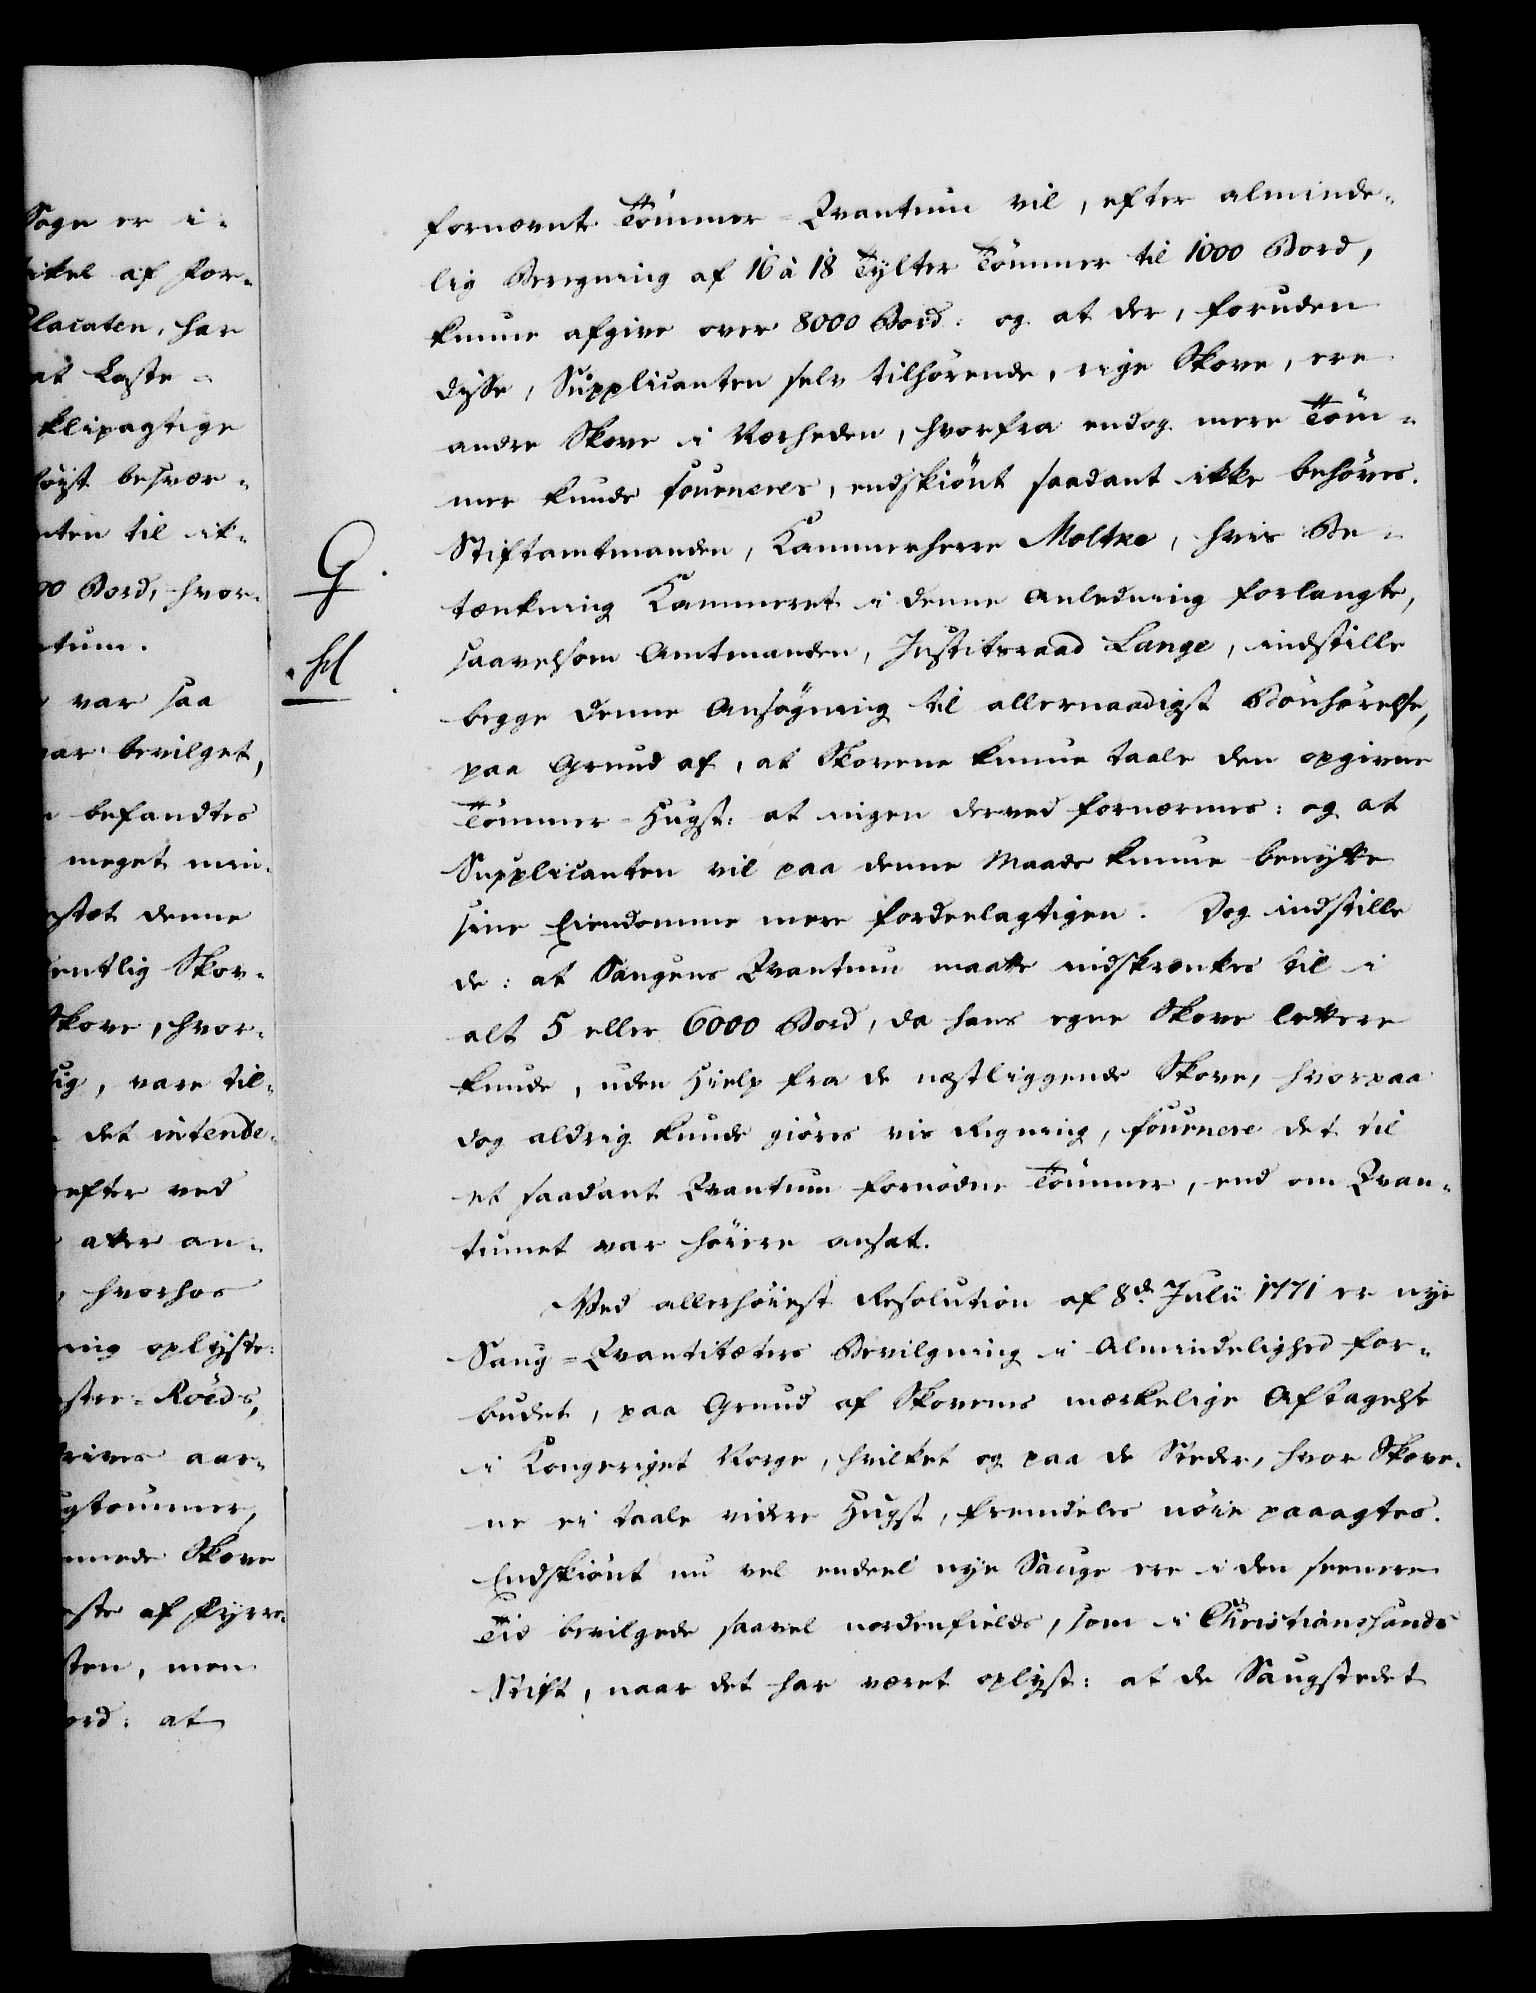 Sogn er i-
ikel af For-
Placaten, har
at Laste-
klipagtige
höist besvær-
nten til at-
00 Bord, hvor-
tum.
var saa
var bevilget,
befandtes
meget min-
stat denne
entlig Skov-
Skove, hvor-
ig, vare til-
det intende-
efter ved
atter an-
hvorhos
ning oplyste:
stre-Röeds,
rives aar-
gtömmer,
nnede Skove
ste af Fyrre-
sten, men
ord: at
fornævnte Tömmer-Qvantum vil, efter alminde-
lig Beregning af 16 à 18 Tylter Tömmer til 1000 Bord,
kunne afgive over 8000 Bord: og at der, foruden
disse, Supplicanten selv tilhörende, rige Skove, ere
andre Skove i Nærheden, hvorfra endog mere Töm-
mer kunde fourneres, endskiönt saadant ikke behöves.
G. Stiftamtmanden, Kammerherre Moltke, hvis Be-
tænkning Kammeret i denne Anledning forlangte,
H. saavelsom Amtmanden, Justitsraad Lange, indstille
begge denne Ansögning til allernaadigst Bönhörelse,
paa Grund af, at Skovene kunne taale den opgivne
Tömmer-Hugst: at ingen derved fornærmes: og at
Supplicanten vil paa denne Maade kunne benytte
sine Eiendomme mere fordeelagtigen. Dog indstille
de: at Saugens Qvantum maatte indskrænkes til i
alt 5 eller 6000 Bord, da hans egne Skove lettere
kunde, uden Hielp fra de næstliggende Skove, hvorpaa
dog aldrig kunde giöres vis Regning, fournere det til
et saadant Qvantum fornödne Tömmer, end om Qvan-
tumet var höiere ansat.
Ved allerhöiest Resolution af 8de Julii 1771 er nye
Saug-Qvantitæters Bevilgning i Almindelighed for-
budet, paa Grund af Skovenes mærkelige Aftagelse
i Kongeriget Norge, hvilket og paa de Steder, hvor Skove-
ne ei taale videre Hugst, fremdeles nöie paaagtes.
Endskiönt nu vel endeel nye Sauge ere i den seenere
Tid bevilgede saavel nordenfields, som i Christiansands
Stift, naar det har været oplyst: at de Saugstedet